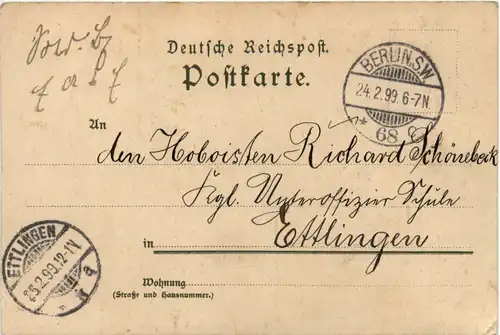 Deutsche Reichspost.
Postkarte.
BERLIN.S.W.
24.2.99.6-7N.
* 68
An
den Hoboisten Richard Schönebeck
Kgl. Unteroffizier Schule
in Ettlingen
ETTLINGEN
25.2.99.12-1N.
Wohnung
(Straße und Hausnummer.)